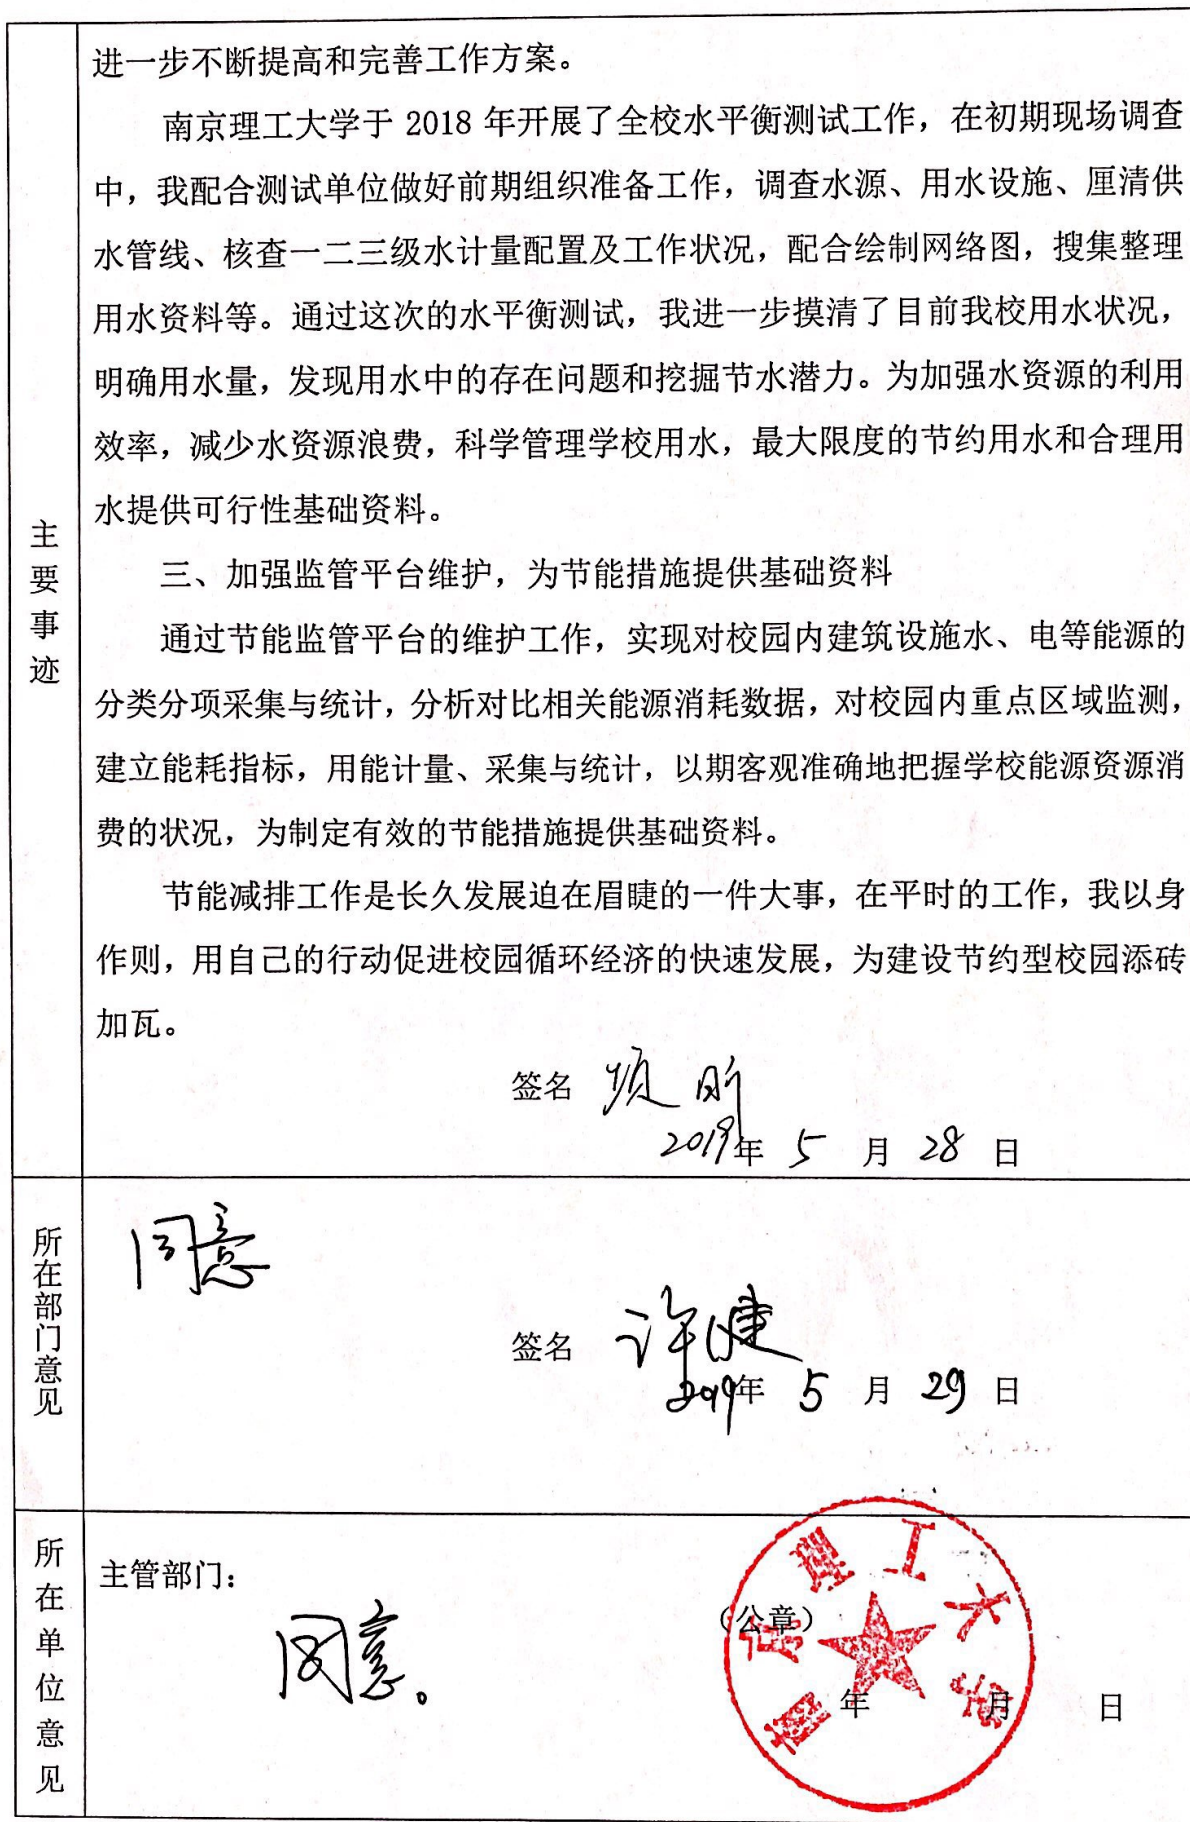 进一步不断提高和完善工作方案。
南京理工大学于 2018 年开展了全校水平衡测试工作，在初期现场调查
中，我配合测试单位做好前期组织准备工作，调查水源、用水设施、厘清供
水管线、核查一二三级水计量配置及工作状况，配合绘制网络图，搜集整理
用水资料等。通过这次的水平衡测试，我进一步摸清了目前我校用水状况，
明确用水量，发现用水中的存在问题和挖掘节水潜力。为加强水资源的利用
效率，减少水资源浪费，科学管理学校用水，最大限度的节约用水和合理用
水提供可行性基础资料。
主要事迹
三、加强监管平台维护，为节能措施提供基础资料
通过节能监管平台的维护工作，实现对校园内建筑设施水、电等能源的
分类分项采集与统计，分析对比相关能源消耗数据，对校园内重点区域监测，
建立能耗指标，用能计量、采集与统计，以期客观准确地把握学校能源资源消
费的状况，为制定有效的节能措施提供基础资料。
节能减排工作是长久发展迫在眉睫的一件大事，在平时的工作，我以身
作则，用自己的行动促进校园循环经济的快速发展，为建设节约型校园添砖
加瓦。
签名 项昕
2019年 5 月 28 日
所在部门意见
同意
签名 许健
2019年 5 月 29 日
所在单位意见
主管部门：
同意。
（公章）
南京理工大学
年 月 日